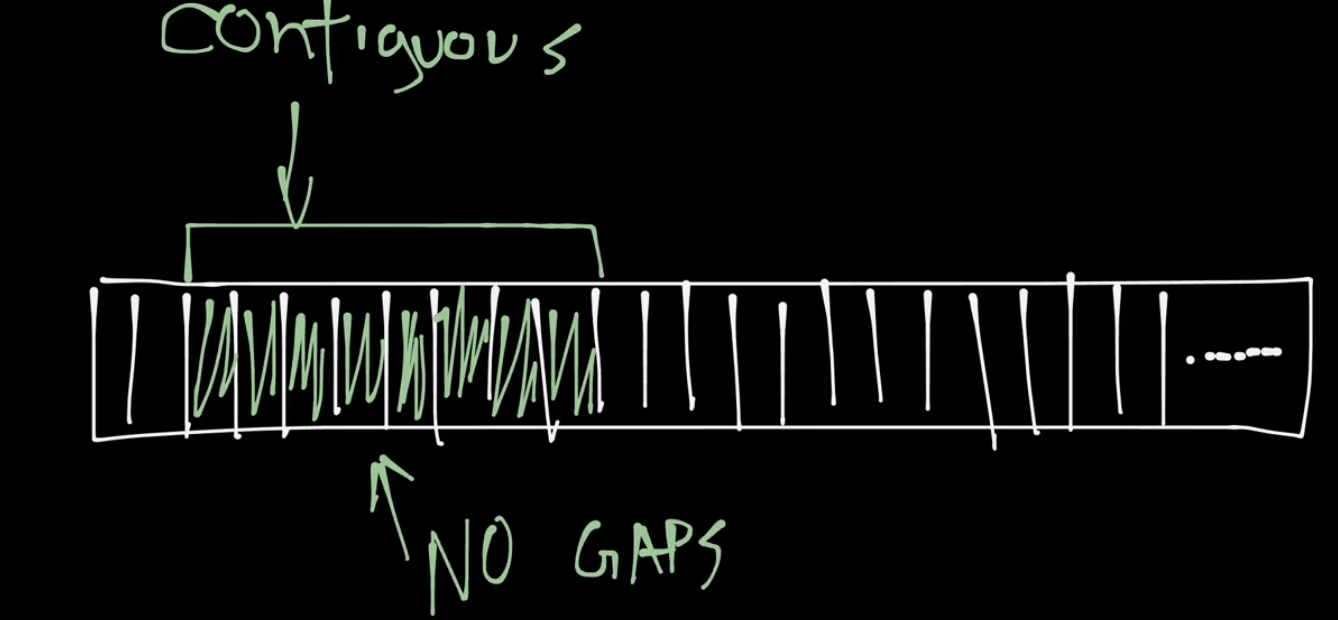 contiguous
NO GAPS